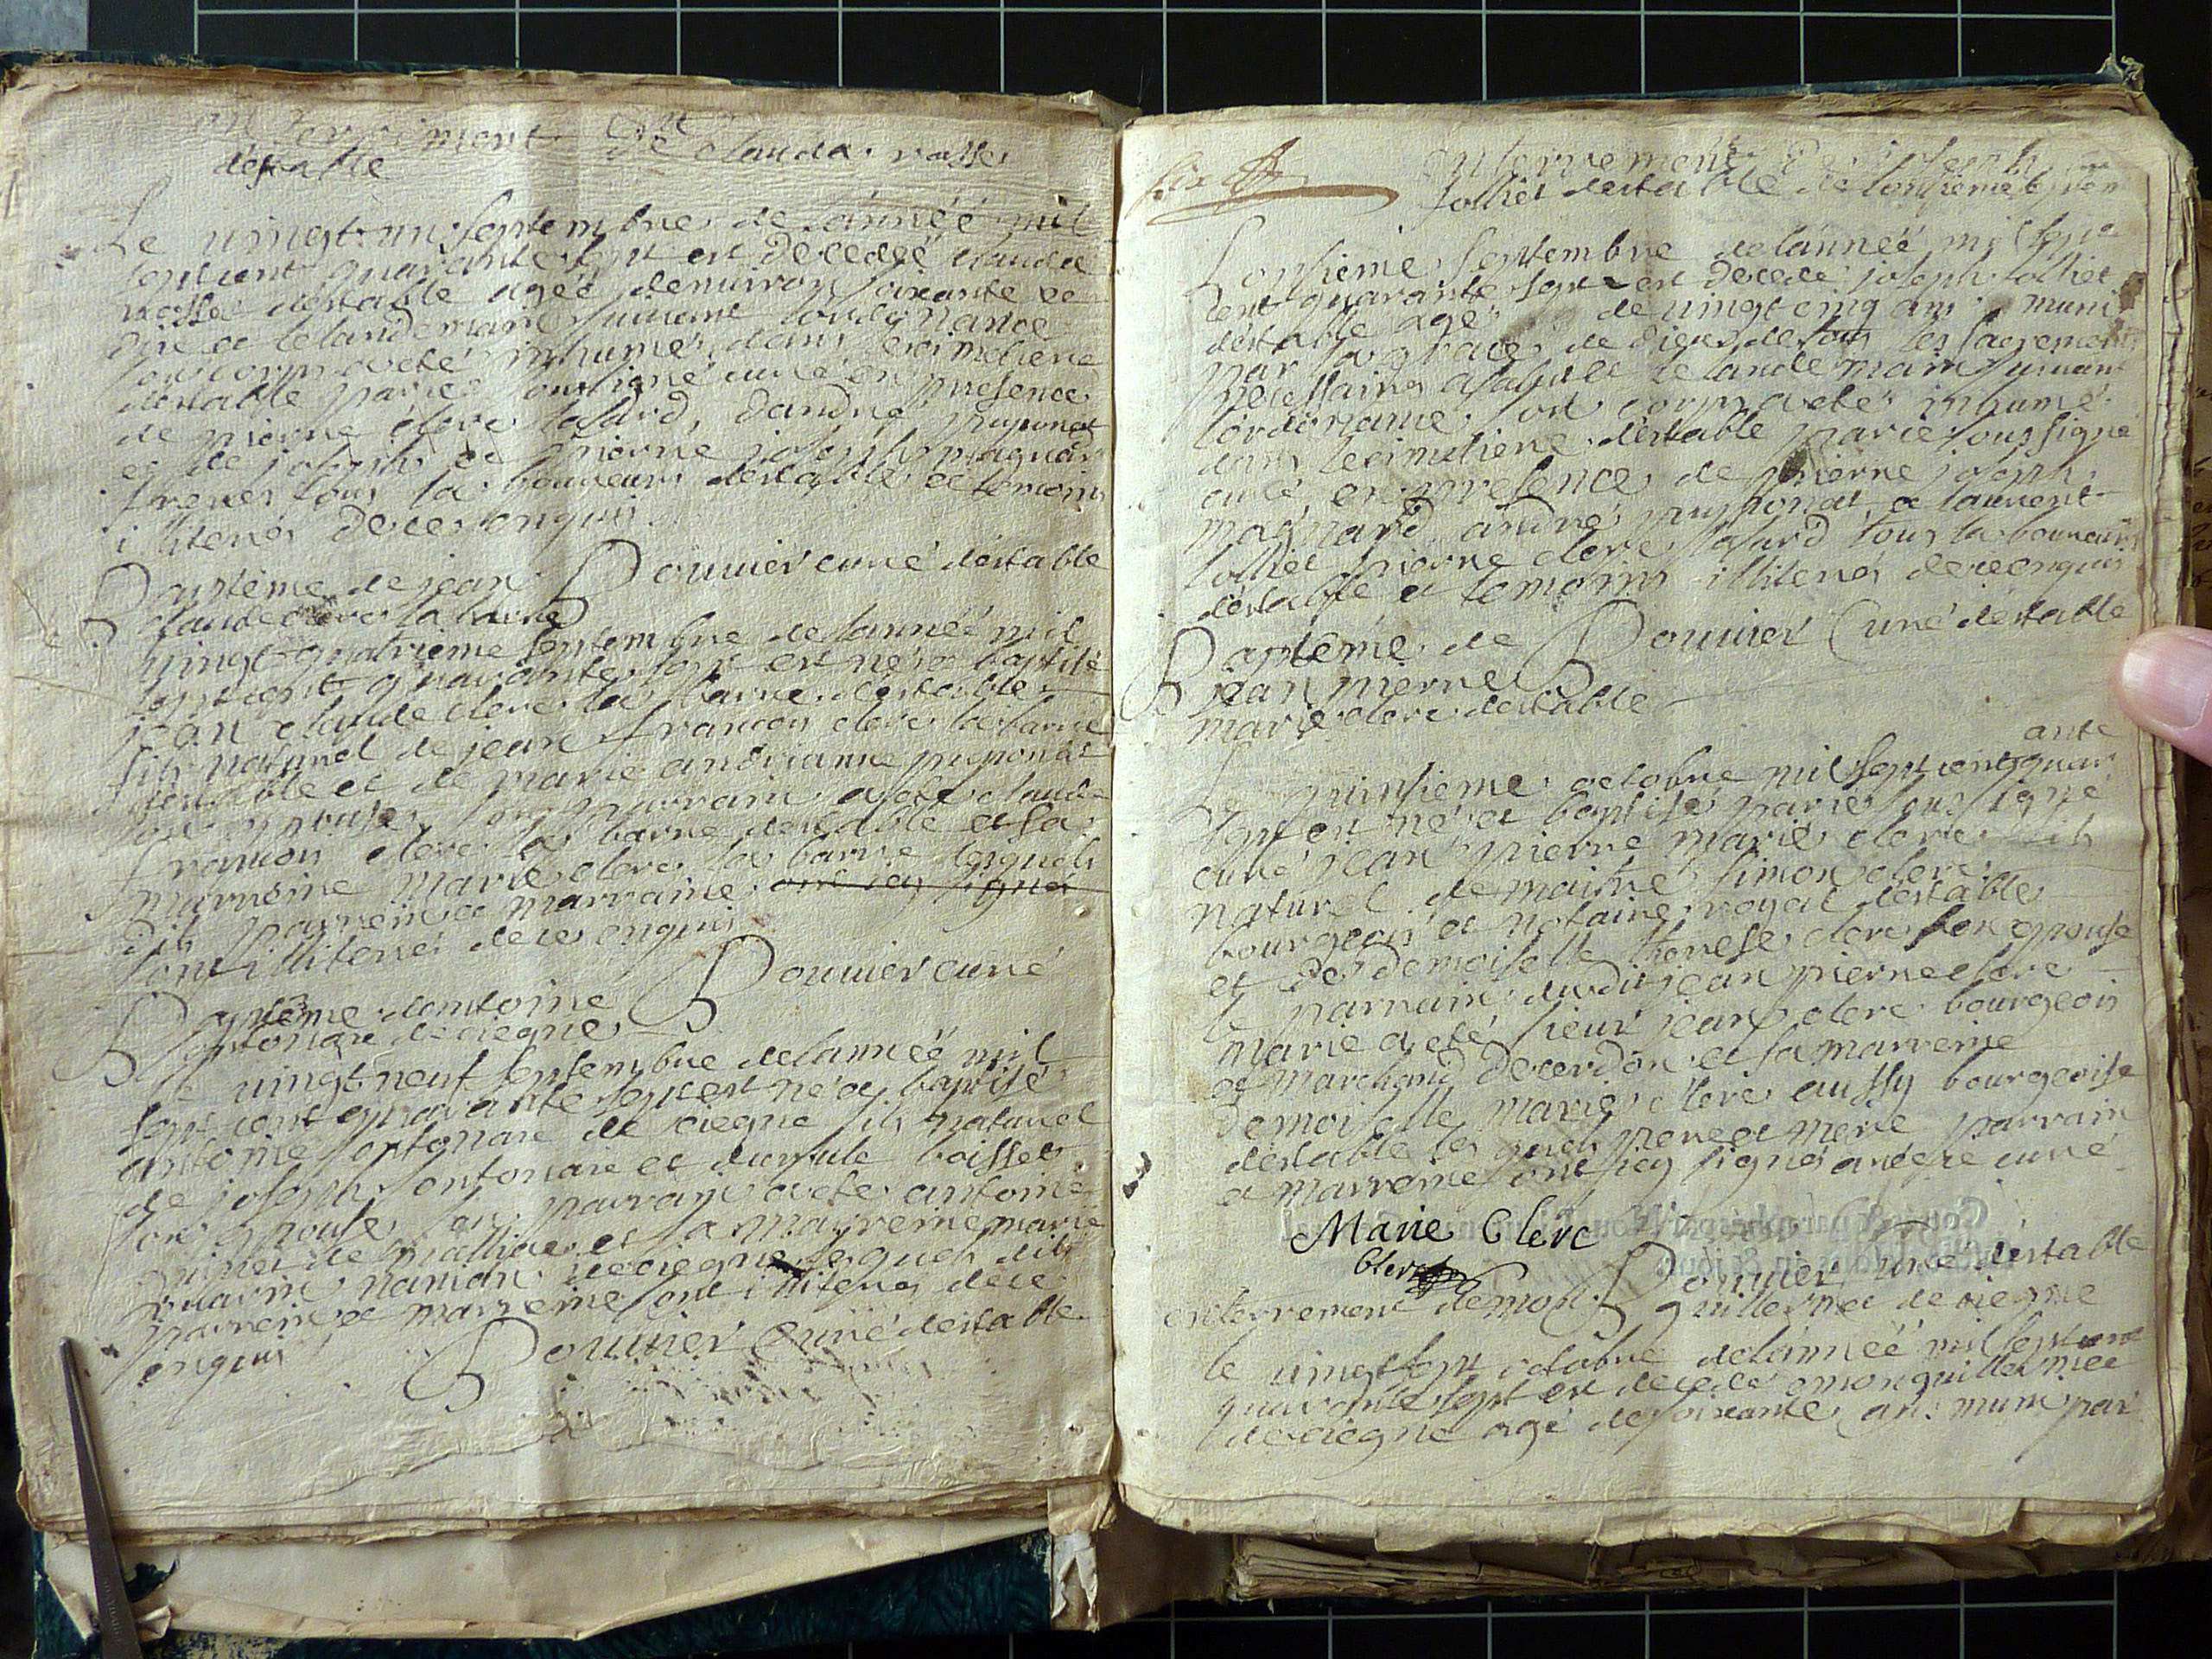 enterrement de clauda rosset
destable
Le vingt un septembre de lannéé mil
septcent quarante sept est decedéé clauda
rosset destable agéé denuiron soixante et
dix et lelandemain suiuant lordonnance
son corps a eté inhumé dans lecimetiere
destable parie soussigné curé en presence
de pierre clerc lasard, dandre puponat
et de joseph et pierre joseph magnard
freres tous laboureurs destable et temoins
illiterés de ce enquis
Bouuier curé destable
Baptéme de jean
claude clerc la barre
vingt quatrieme septembre de lannéé mil
septcent quarante sept est né et baptisé
jean claude clerc la barre destable
fils naturel de jean francois clerc la barre
destable et de marie andrianne puponat
son epouse, son parrain a eté claude
francois clerc la barre destable et sa
marreine marie clerc la barre lesquels
dits parrein et marraine ont icy signés
sont illiterés de ce enquis
Bouuier curé
Baptéme dantoine
sontonax de ciegne
le vingt neuf septembre delannéé mil
sept cent quarante sept est né et baptisé
antoine sontonax de ciegne fils naturel
de joseph sontonax et dursule boisset
son epouse, son parrain a eté antoine
et sa marreine marie
deciegne lesquels dits
parrein et marreine sont illiterés de ce
enquis
Bouuier Curé destable
six
enterrement de joseph
jolliet destable
Lonsieme septembre delannéé mil sept
cent quarante sept est decedé joseph jolliet
destable agé de vingt cinq ans muni
par la grace de dieu de tous les sacrements
necessaires asalut et lelandemain suiuant
lordonnance son corps a eté inhumé
dans lecimetiere destable parie soussigné
curé en presence de pierre joseph
magnard andré puponat, et laurent
jolliet pierre clerc lasard tous laboureurs
destable et temoins illiterés de ce enquis
Bouuier Curé destable
Baptéme de
jean pierre
marie clerc destable
ante
Le quinsieme octobre mil sept cent quar
sept est né et baptisé parie soussigné
curé jean pierre marie clerc fils
naturel de maitre simon clerc
bourgeois et notaire royal destable
et de demoiselle therese clerc son epouse
le parrain dudit jean pierre clerc
marie a eté sieur jean clerc bourgeois
et marchand decerdon et sa marreine
Demoiselle marie clerc aussy bourgeoise
destable lesquels pere et mere parrain
et marreine ont icy signés auec ie curé
Marie Clerc
Clerc
Bouuier curé destable
enterrement demon guillermet de ciegne
le vingt sept octobre delannéé mil sept cent
quarante sept est decedé emon guillermet
deciegne agé desoixante ans muni par